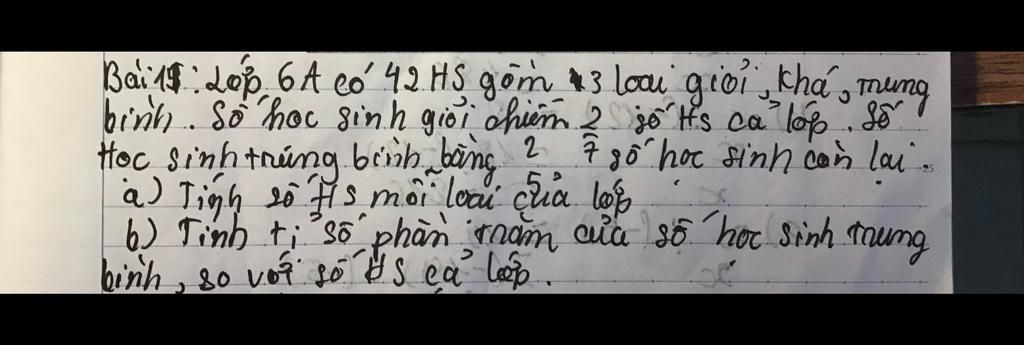 Bài 15: Lớp 6A có 42 HS gồm 3 loại giỏi, khá, trung
bình. Số học sinh giỏi chiếm 2/7 số HS cả lớp. Số
Học sinh trung bình bằng 2/5 số học sinh còn lại.
a) Tính số HS mỗi loại của lớp
b) Tính tỉ số phần trăm của số học sinh trung
bình, so với số HS cả lớp.